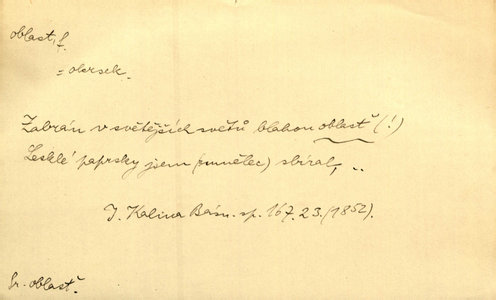 oblast, f.
= okrsek.
Zabrán v světějších světů blahou oblasť (!)
Lesklé paprsky jsem (umělec) sbíral, ..
J. Kalina Básn. sp. 167. 23. (1852).
Sr. oblasť.